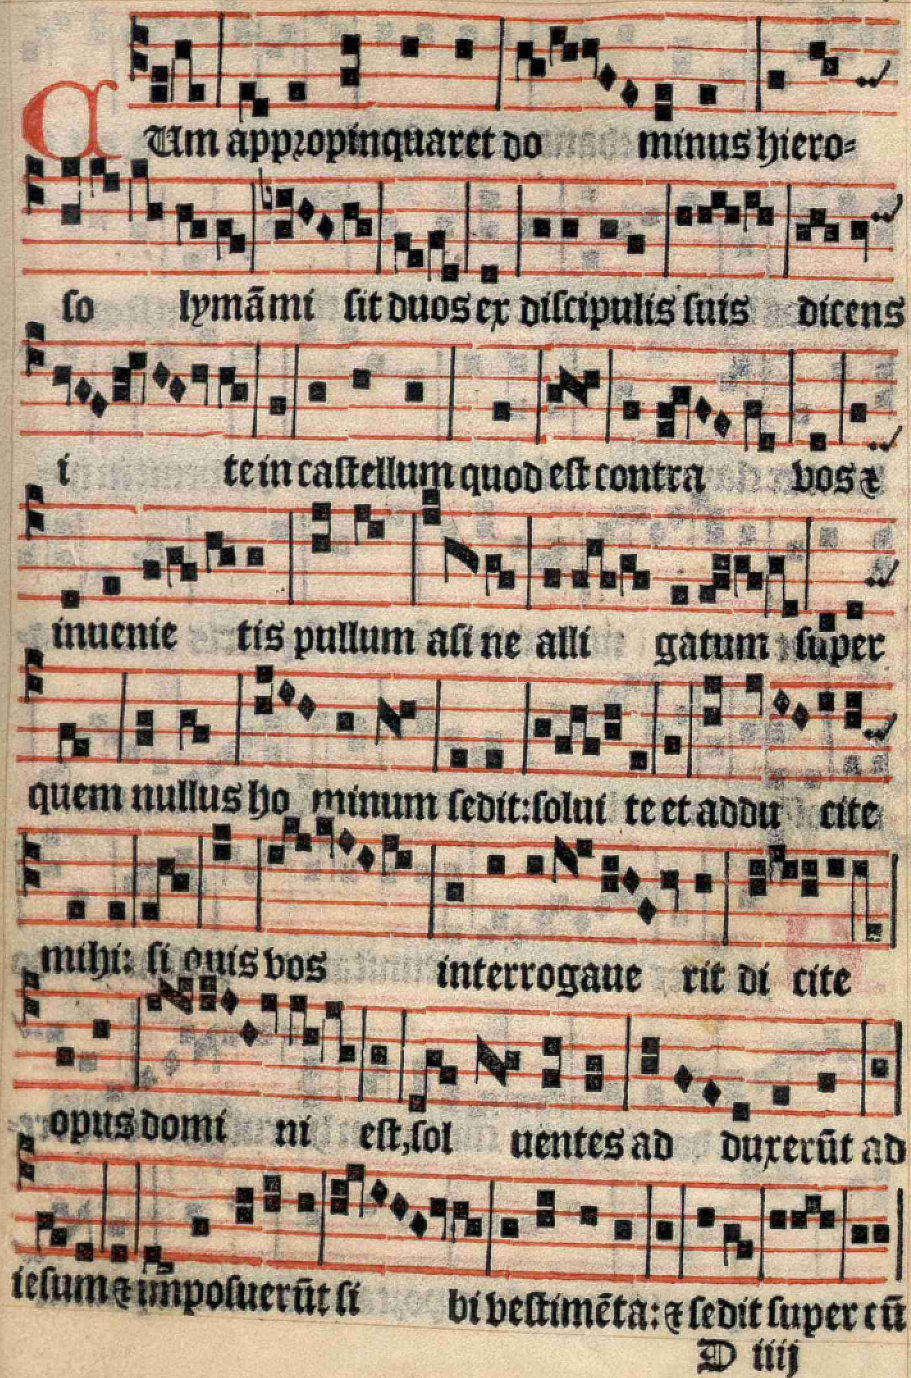 CUm appropinquaret do minus hiero-
so lymãmi sit duos ex discipulis suis dicens
i te in castellum quod est contra vos &
inuenie tis pullum asi ne alli gatum super
quem nullus ho minum sedit: solui te et addu cite
mihi: si quis vos interrogaue rit di cite
opus domi ni est, sol uentes ad duxerũt ad
iesum & imposuerũt si bi vestimẽta: & sedit super eũ
D iiij